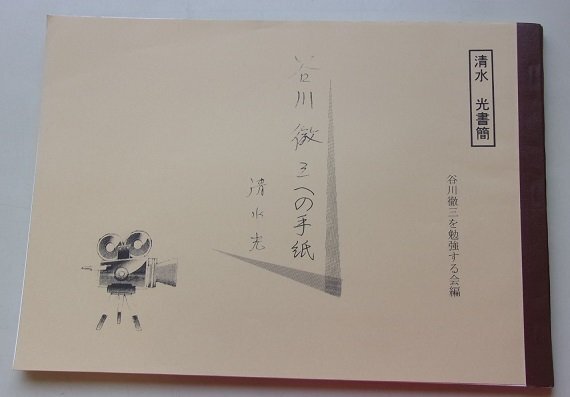 清水　光書簡
谷川徹三を勉強する会編
谷川徹三への手紙
清水光